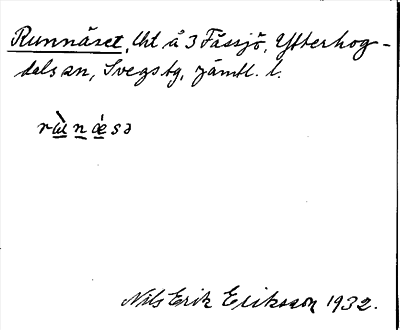 Runnäset, lht å 3 Fåssjö, Ytterhog-
dals sn, Svegs tg, Jämtl. l.
rù̱ṉǽ̱sə
Nils Erik Eriksson 1932.